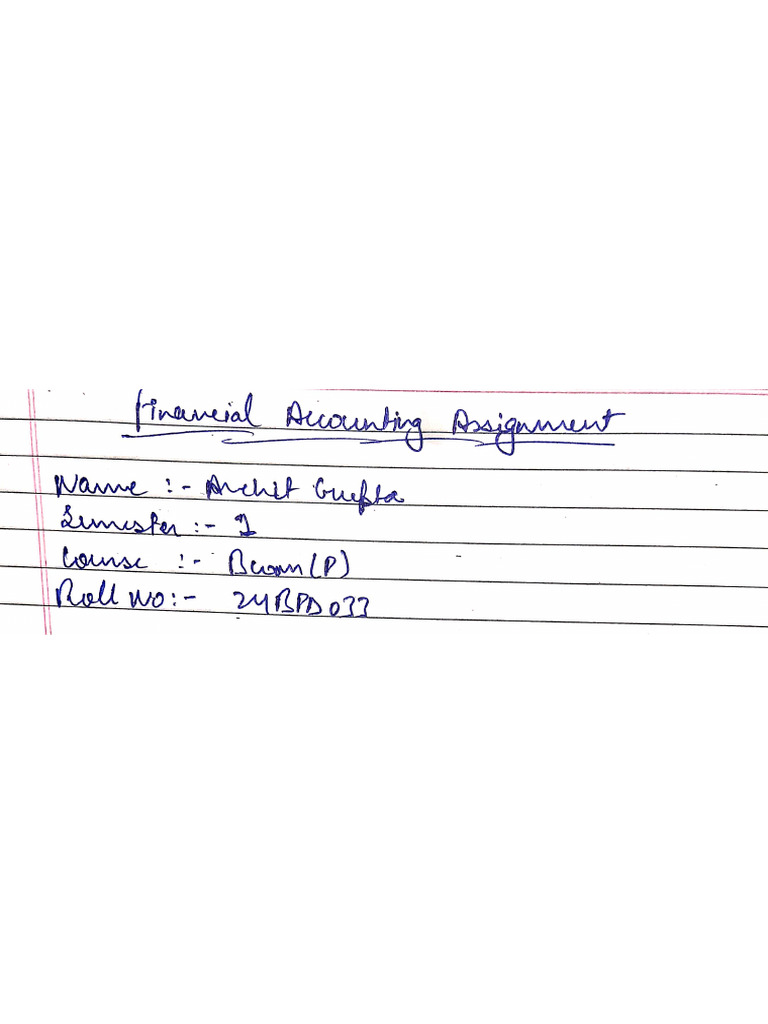 Financial Accounting Assignment
Name :- Archit Gupta
Semester :- 1
Course :- Bcom(P)
Roll No :- 24BPD033